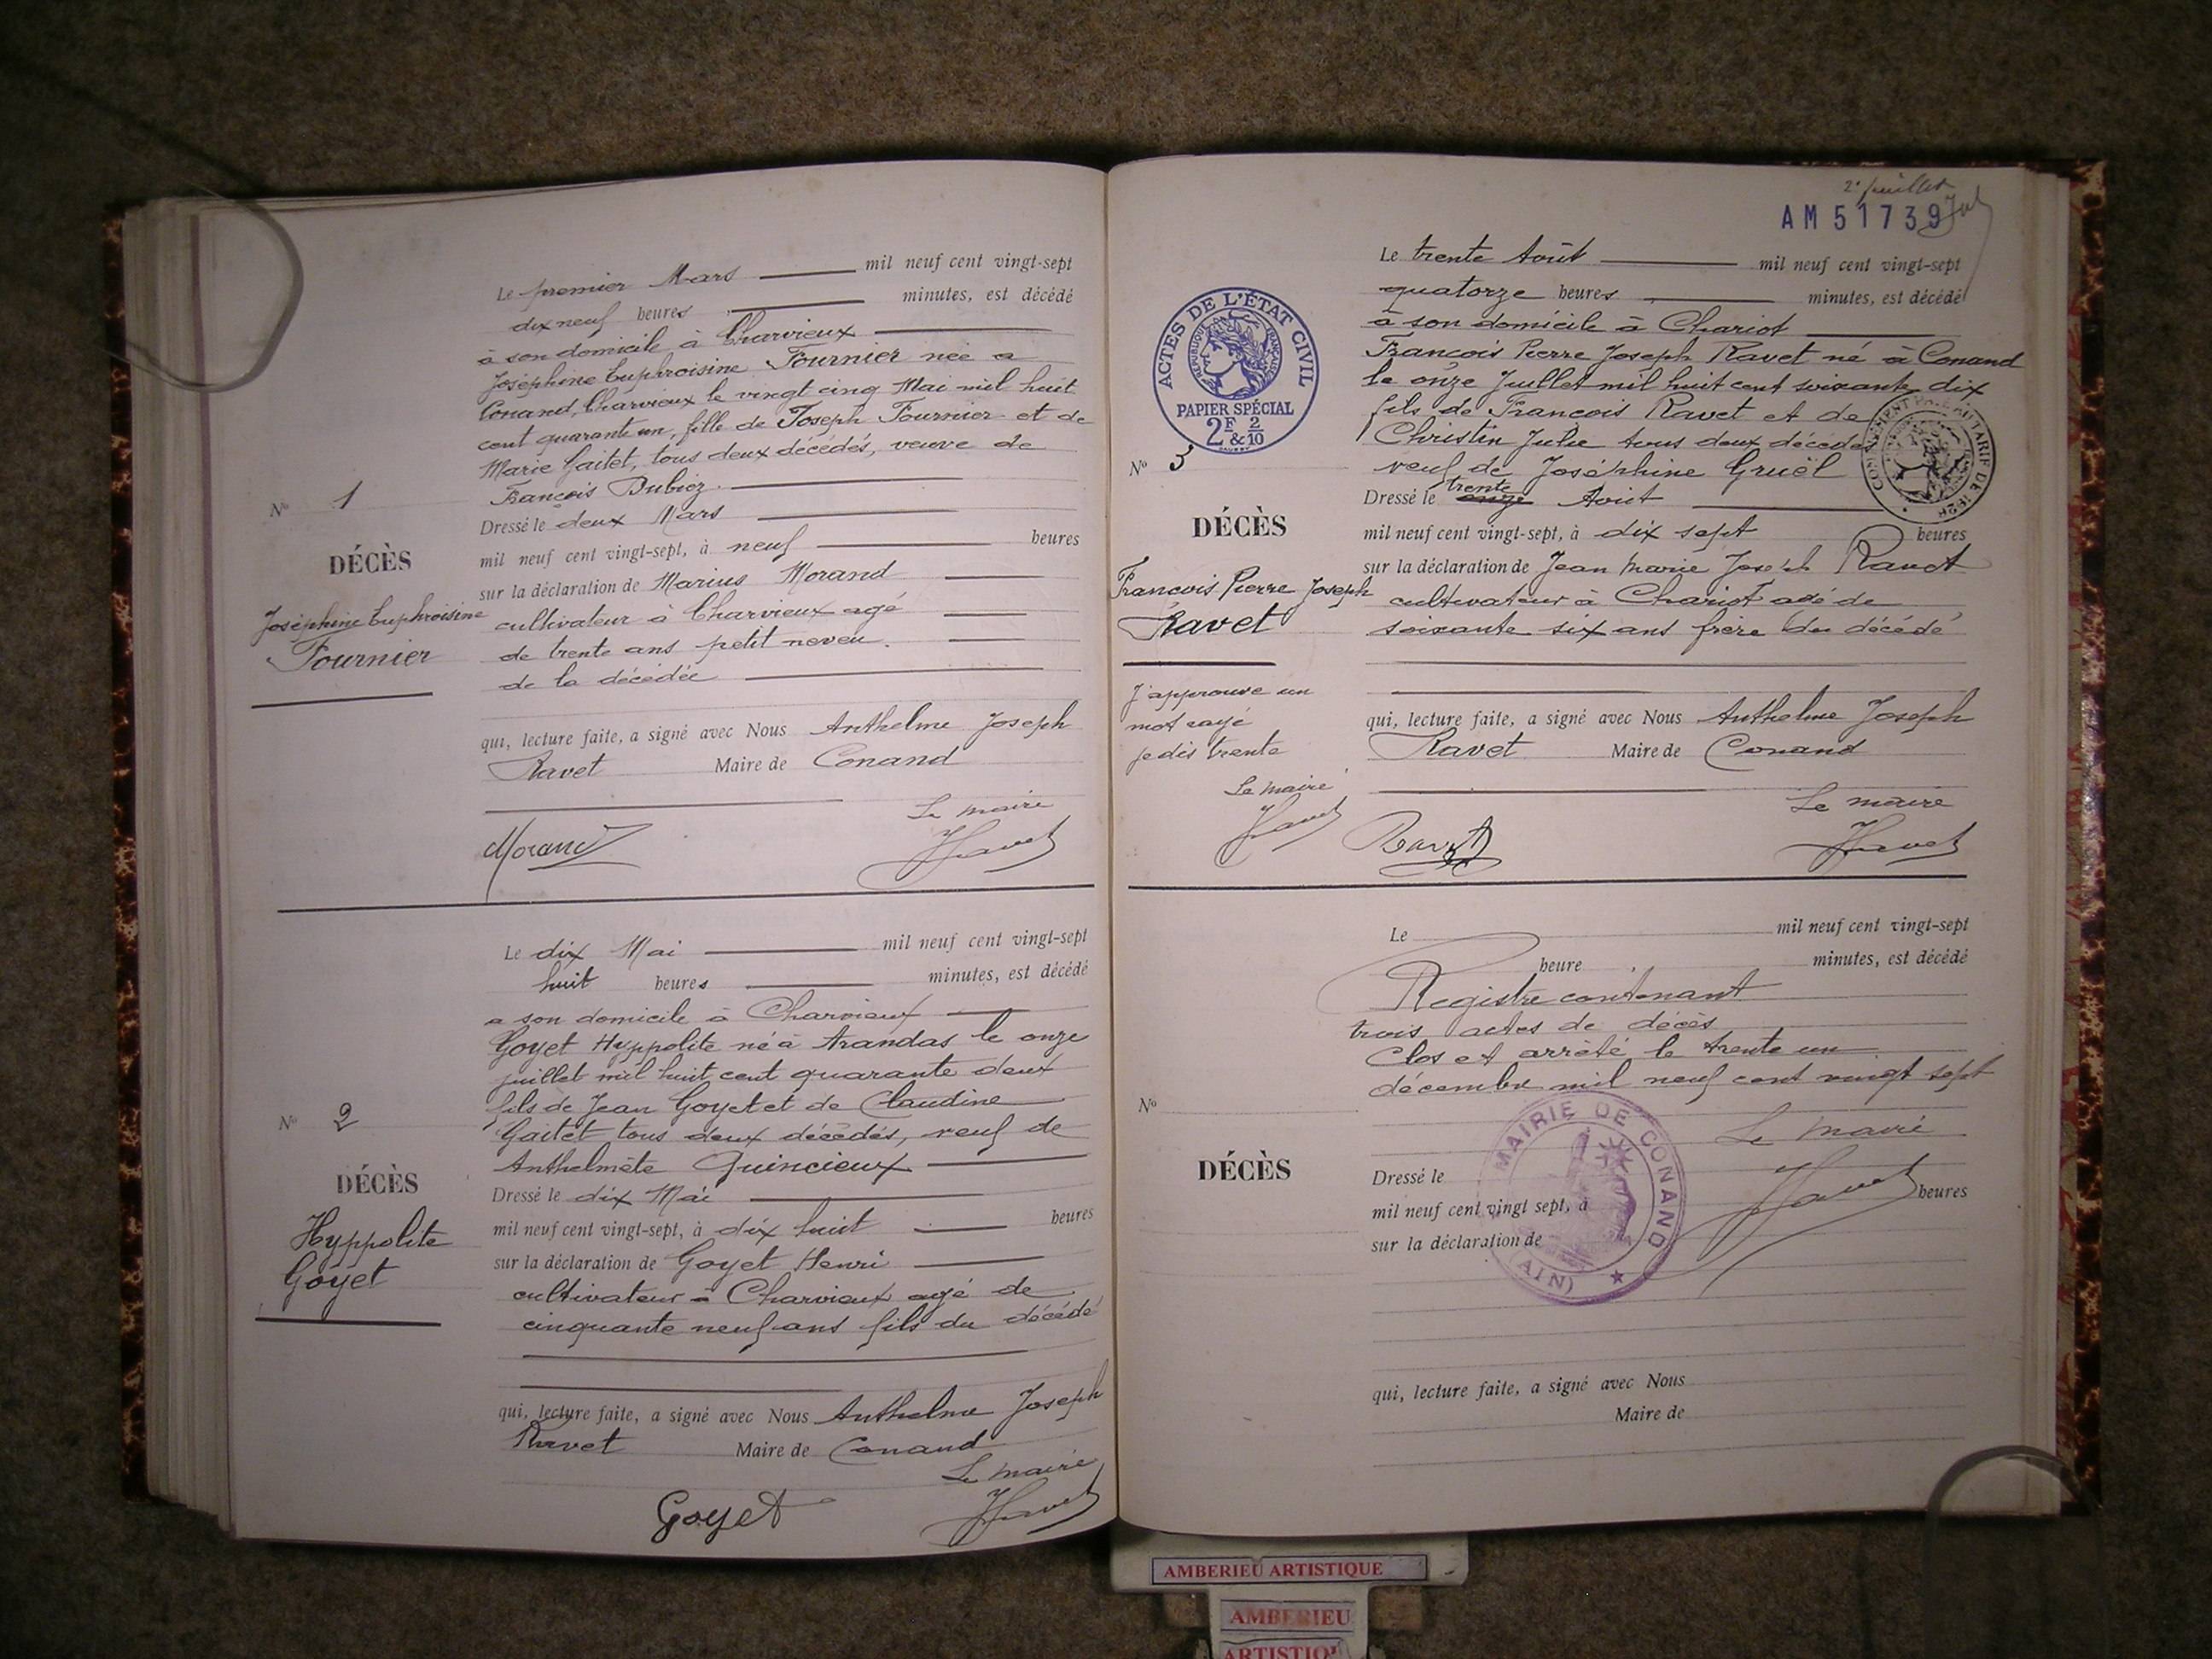 Le premier Mars mil neuf cent vingt-sept
dix neuf heures minutes, est décédé
à son domicile à Charvieux
Joséphine Euphroisine Fournier née a
Conand, Charvieux le vingt cinq Mai mil huit
cent quarante un, fille de Joseph Fournier et de
Marie Gaitet, tous deux décédés, veuve de
François Dubiez.
Nº 1
DÉCÈS
Joséphine Euphroisine
Fournier
Dressé le deux Mars
mil neuf cent vingt-sept, à neuf heures
sur la déclaration de Marius Morand
cultivateur à Charvieux agé
de trente ans petit neveu.
de la décédée
qui, lecture faite, a signé avec Nous Anthelme Joseph
Ravet Maire de Conand
Le maire
Morand JRavet
Le dix Mai mil neuf cent vingt-sept
huit heures minutes, est décédé
a son domicile à Charvieux
Goyet Hyppolite né à Arandas le onze
juillet mil huit cent quarante deux
fils de Jean Goyet et de Claudine
Gaitet tous deux décédés, veuf de
Anthelmète Quincieux
Nº 2
DÉCÈS
Hyppolite
Goyet
Dressé le dix Mai
mil neuf cent vingt-sept, à dix huit heures
sur la déclaration de Goyet Henri
cultivateur à Charvieux agé de
cinquante neuf ans fils du décédé
qui, lecture faite, a signé avec Nous Anthelme Joseph
Ravet Maire de Conand
Le maire
Goyet JRavet
2e juillet
AM51739
ACTES DE L'ÉTAT CIVIL
RÉPUBLIQUE FRANÇAISE
PAPIER SPÉCIAL
2F & 2/10
Le trente Août mil neuf cent vingt-sept
quatorze heures minutes, est décédé
à son domicile à Chariot
François Pierre Joseph Ravet né à Conand
le onze Juillet mil huit cent soixante dix
fils de François Ravet et de
Christin Julie tous deux décédés
veuf de Joséphine Gruël
Nº 3
DÉCÈS
François Pierre Joseph
Ravet
J'approuve un
mot rayé
je dis trente
Le maire
JRavet
trente
Dressé le onze Août
mil neuf cent vingt-sept, à dix sept heures
sur la déclaration de Jean Marie Joseph Ravet
cultivateur à Chariot agé de
soixante six ans frère du décédé
qui, lecture faite, a signé avec Nous Anthelme Joseph
Ravet Maire de Conand
Le maire
Ravet JRavet
Le mil neuf cent vingt-sept
heure minutes, est décédé
Registre contenant
trois actes de décès
Clos et arrêté le trente un
décembre mil neuf cent vingt sept
Le maire
JRavet
Nº
DÉCÈS
MAIRIE DE CONAND
(AIN)
Dressé le
mil neuf cent vingt sept, à heures
sur la déclaration de
qui, lecture faite, a signé avec Nous
Maire de
AMBERIEU ARTISTIQUE
AMBERIEU
ARTISTIQUE